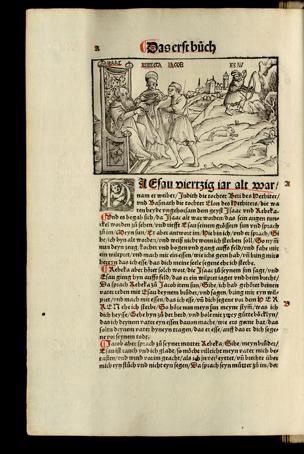 Das erst bůch
ISAAC REBECCA IACOB ESAV
DA Esau viertzig iar alt war/
nam er weiber/ Judith die tochter Beri des Hethiter/
und Basmath die tochter Elon des Hethiters/ die wa
ren beyde ungehorsam dem geyst Isaac und Rebeka.
Und es begab sich/ da Isaac alt war worden/ das sein augen tun-
ckel worden zů sehen/ und rieff Esau seinem grössern sun und sprach
zů im/ Meyn sun/ Er aber antwort im/ Hie bin ich/ und er sprach/ Si
he/ ich byn alt worden/ und weiß nicht wenn ich sterben soll/ So nym
nun deyn zeug/ kocher und bogen und gang auffs feld und fahe mir
ein wiltpret/ und mach mir ein essen/ wie ichs gern hab/ und bring mirs
hereyn das ich esse/ das dich meine seele segene ehe ich sterbe.
Rebeka aber höret solch wort/ die Isaac zů seynem sun sagt/ und
Esau gieng hyn auffs feld/ das er ein wiltpret iaget und heim brecht/
Da sprach Rebeka zů Jacob irem sun/ Sihe/ ich hab gehöret deinen
vater reden mit Esau deynem bruder/ und sagen/ bring mir eyn wil-
pret/ und mach mir essen/ das ich esse/ und dich segene vor dem HER
REN ehe ich sterbe/ So höre nun meyn sun meyne stym/ was ich
dich heysse/ Gehe hyn zů der herd/ und hole mir zwey gůtte böcklyn/
das ich deynem vater eyn essen davon mache/ wie ers gerne hat/ das
soltu deynem vater hyneyn tragen/ das er esse/ auff das er dich sege-
ne vor seynem tode.
Jacob aber sprach zů seyner mutter Rebeka/ Sihe/ meyn bruder/
Esau ist rauch und ich gladt/ so möcht villeicht meyn vater mich be-
tasten/ und wurd vor im geacht/ als ich in verspottet/ und brechte uber
mich eyn flůch und nicht eyn segen/ Da sprach seyn můtter zů im/ der